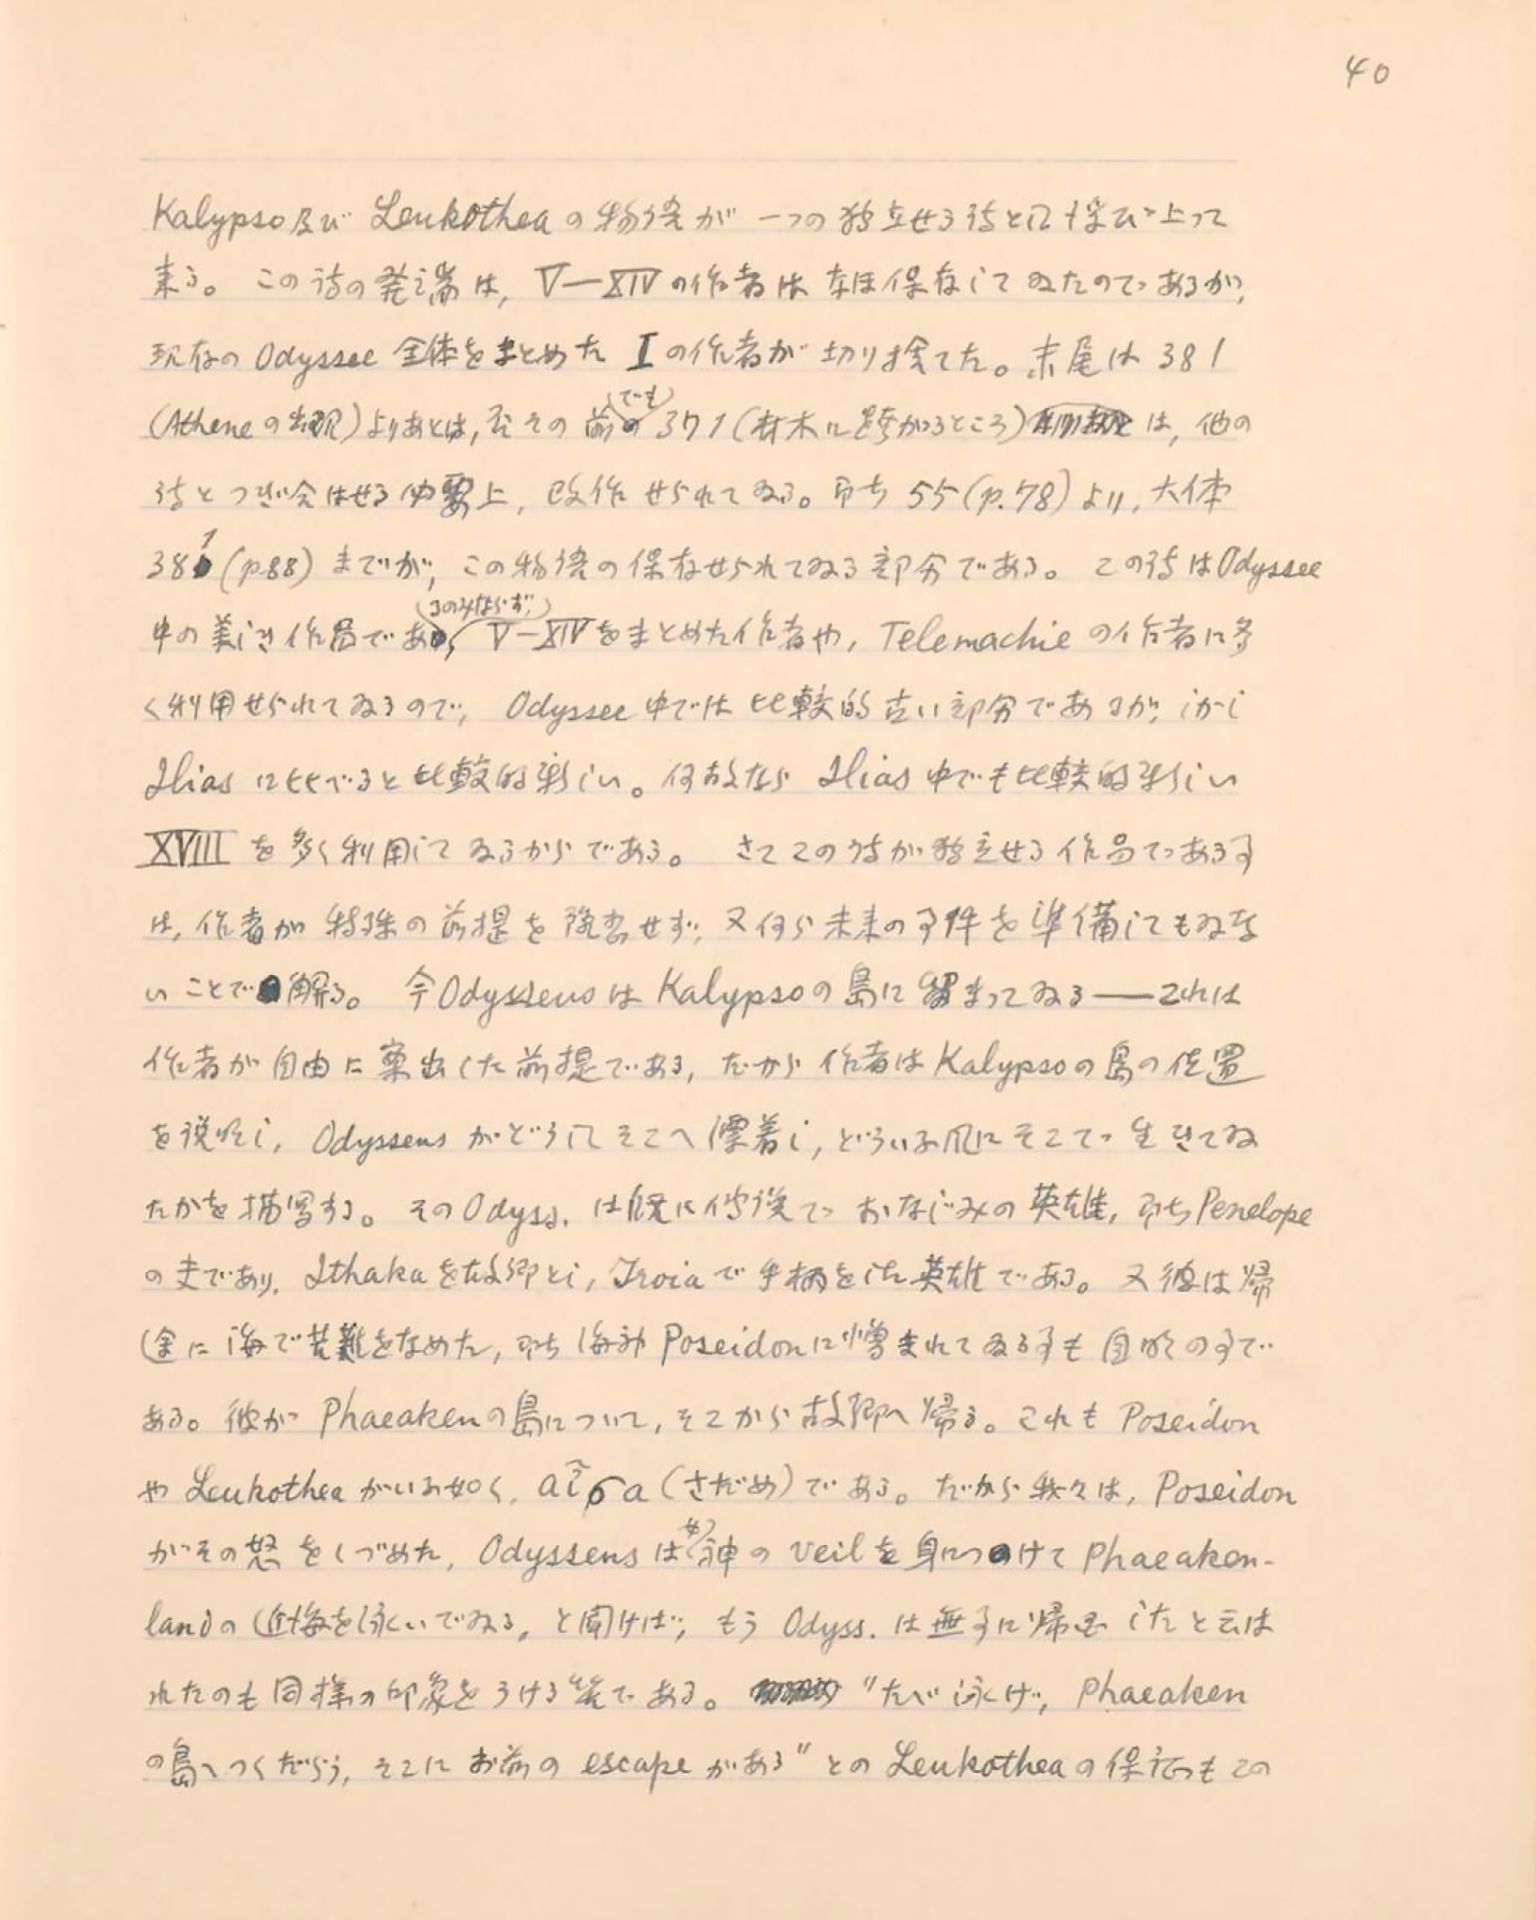 40
Kalypso及び Leukothea の物語が 一つの独立せる詩として浮び上って
来る。 この詩の発端は, V—XIV の作者は なほ保存してゐたのであるが,
現存の Odyssee 全体をまとめた I の作者が 切り捨てた。末尾は 381
(Atheneの出現)よりあとは, 否その前でも 371 (材木に跨がるところ) は, 他の
詩とつぎ合はせる必要上, 改作せられてゐる。即ち 55 (p.78) より, 大体
381 (p.88) までが, この物語の保存せられてゐる部分である。 この詩はOdyssee
中の美しき作品であるのみならず, V—XIVをまとめた作者や, Telemachie の作者に多
く利用せられてゐるので, Odyssee 中では 比較的古い部分であるが, しかし
Ilias に比べると比較的新しい。何故なら Ilias 中でも比較的新しい
XVIII を多く利用してゐるからである。 さてこの詩が独立せる作品である事
は, 作者が 特殊の前提を 必要せず, 又何ら未来の事件を準備してもゐな
いことで解る。 今OdysseusはKalypsoの島に留まってゐる——これは
作者が自由に案出した前提である, だから作者はKalypsoの島の位置
を説明し, Odysseus がどうしてそこへ漂着し, どういふ風にそこで生きてゐ
たかを描写する。 そのOdyss. は既に伝説でおなじみの英雄, 即ちPenelope
の夫であり, Ithakaを故郷とし, Troiaで手柄をした英雄である。 又彼は帰
途に海で苦難をなめた, 即ち海神Poseidonに憎まれてゐる事も自明の事で
ある。彼が Phaeakenの島について, そこから故郷へ帰る。これもPoseidon
や Leukothea がいふ如く, αἶσα (さだめ)である。だから我々は, Poseidon
がその怒をしづめた, Odysseusは女神の veil を身につけて Phaeaken-
landの近海を泳いでゐる, と聞けば, もう Odyss. は無事に帰国したと云は
れたのも同様の印象をうける筈である。 "たゞ泳げ, Phaeaken
の島へつくだらう, そこにお前の escape がある" との Leukotheaの保証もこの